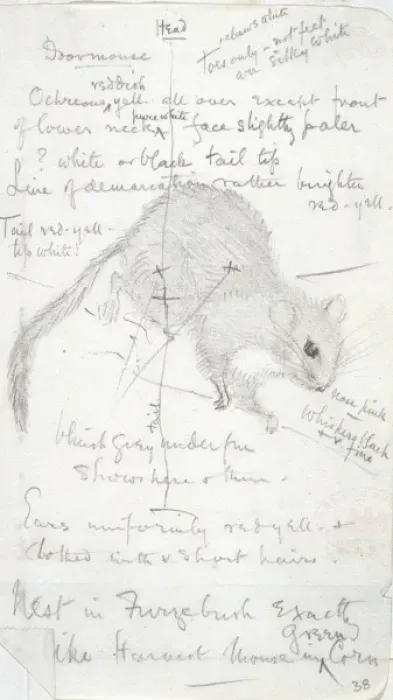 Head
rebus white
Toes only - not feet
are silky white
Dormouse
reddish
Ochreous, yell. all over except front
pure white
of lower neck, face slightly paler
? white or black tail tip
Line of demarcation rather brighter
red-yell.
Tail red-yell-
tip white!
nose pink
Whiskers black
& v fine
tail
Bluish grey under fur
shows here & there.
Ears uniformly red yell. &
clothed with v short hairs.
Nest in Furzebush Exactly
like Harvest Mouse in green Corn
38